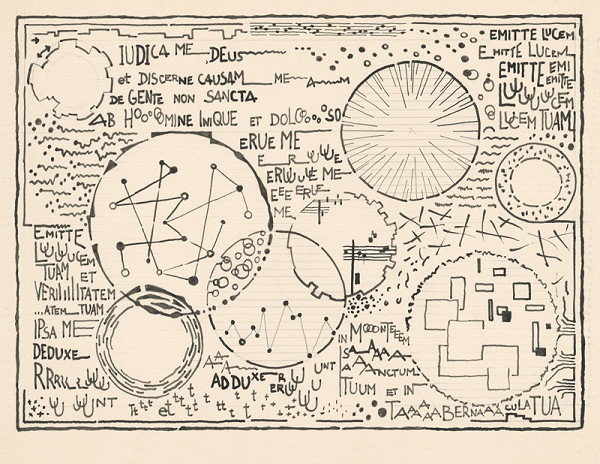 IUDICA ME DEUS
et DISCERNE CAUSAM ME A M
DE GENTE NON SANCTA
AB HOOOOMINE INIQUE ET DOLOOOOSO
ERUE ME
E R UUUE
ERUUUE ME
EEE ERUE
ME
EMITTE LUCEM
EMITTE LUCEM
EMITTE EMI
EMITTE
LUUUUCEM
LUCEM TUAM
EMITTE
LUUUUCEM
TUAM ET
VERIIIIITATEM
...ATEM TUAM
IPSA ME
DEDUXE
UNT
et
ADDUXE R UNT
IN MOOONTEEEM
SAAAAANCTUM
TUUM ET IN
TAAAAABERNAAACULA TUA